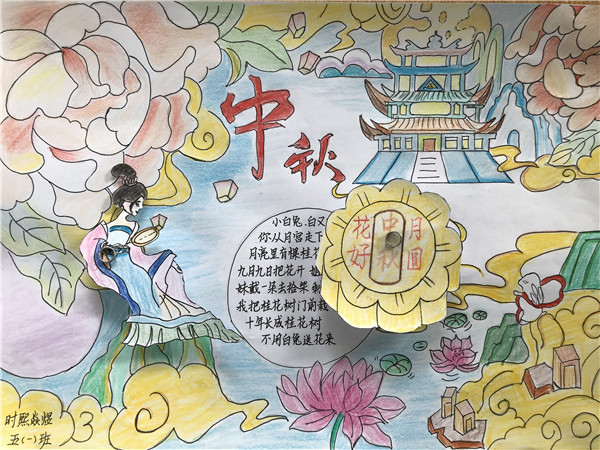 中秋
花好
中秋
月圆
小白兔,白又
你从月宫走下
月亮里有棵桂花
九月九日把花开
妹栽一朵去拾柴
我把桂花树门前栽
十年长成桂花树
不用白兔送花来
时熙焱煜
五(一)班